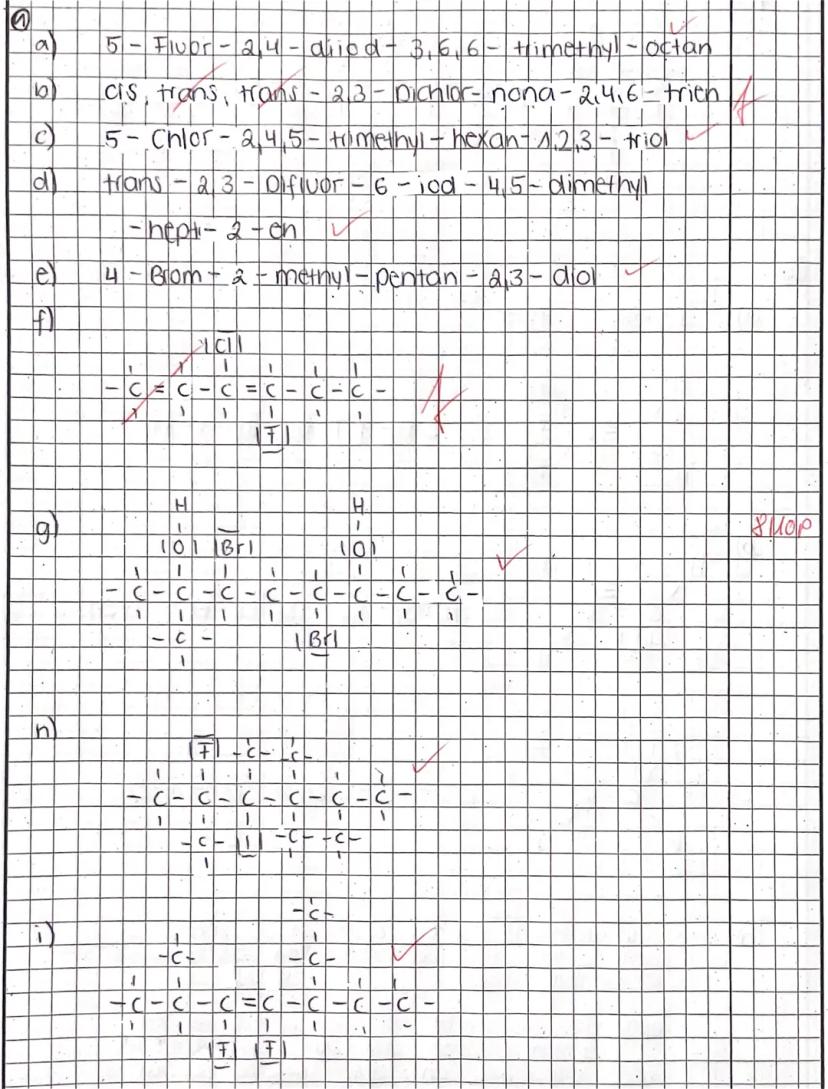 1
a) 5 - Fluor - 2,4 - diiod - 3,6,6 - trimethyl - octan
b) cis, trans, trans - 2,3 - Dichlor - nona - 2,4,6 - trien
c) 5 - Chlor - 2,4,5 - trimethyl - hexan - 1,2,3 - triol
d) trans - 2,3 - Difluor - 6 - iod - 4,5 - dimethyl
- hept - 2 - en
e) 4 - Brom - 2 - methyl - pentan - 2,3 - diol
f)
|Cl|
- C = C - C = C - C - C -
|F|
g)
H H
|O| |Br| |O|
- C - C - C - C - C - C - C - C -
- C - |Br|
8 MOP
h)
|F| - C - - C -
- C - C - C - C - C - C -
- C - |I| - C - - C -
i)
- C -
- C - - C -
- C - C - C = C - C - C - C -
|F| |F|